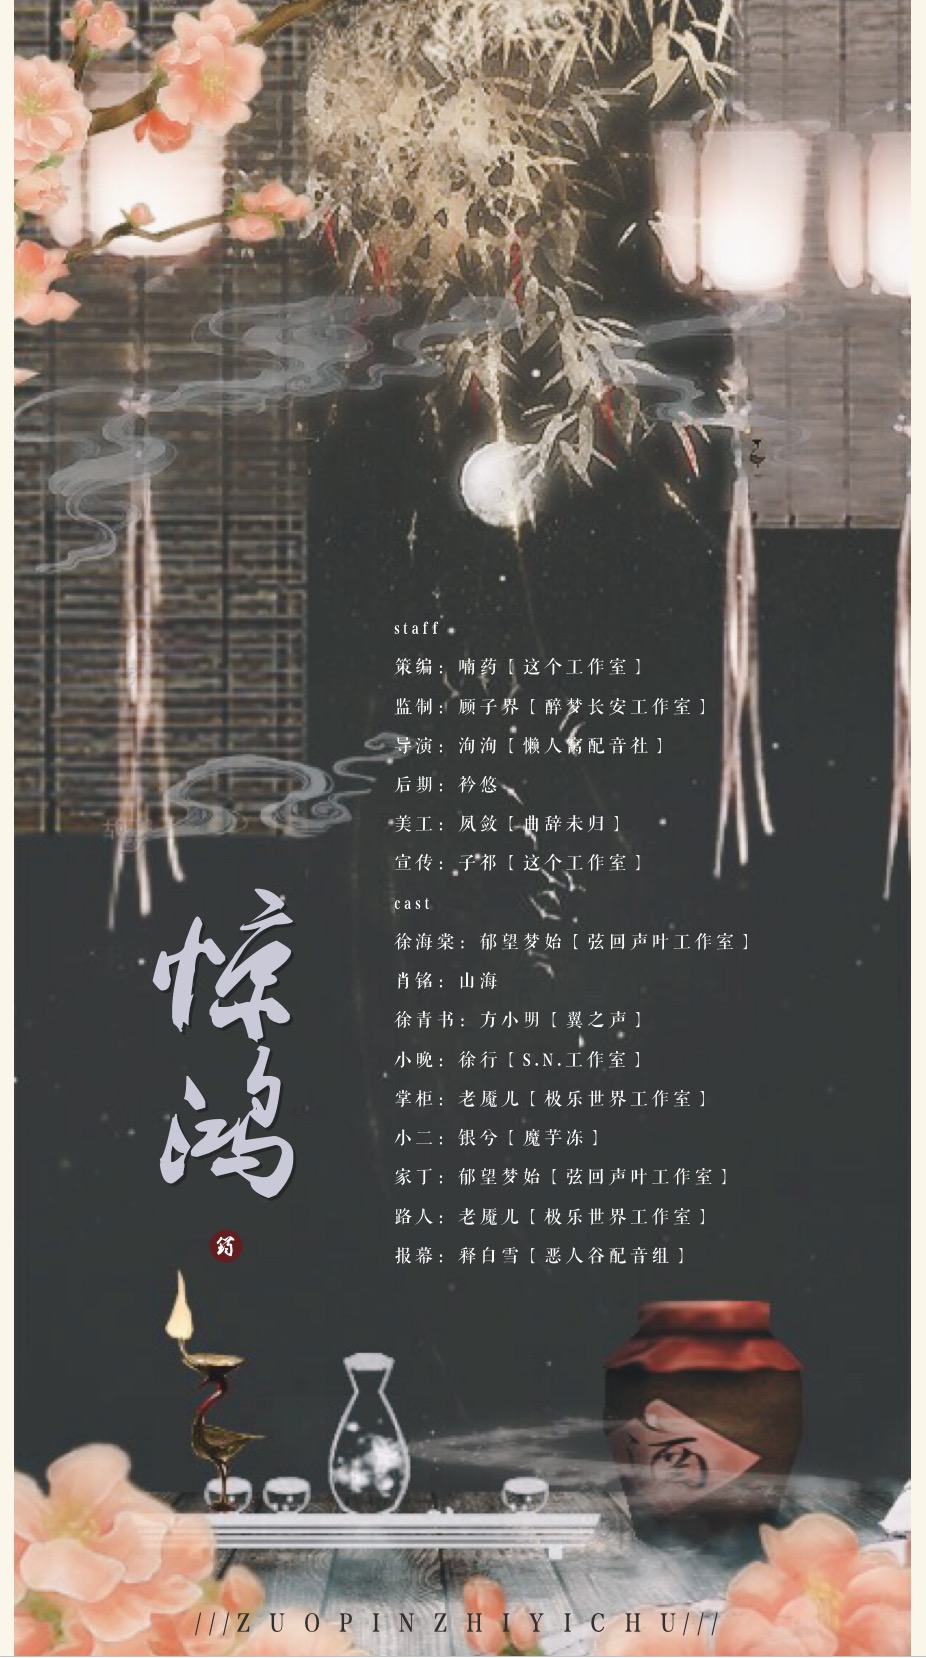 staff
策编：喃药【这个工作室】
监制：顾子界【醉梦长安工作室】
导演：洵洵【懒人窝配音社】
后期：衿悠
美工：凤敛【曲辞未归】
宣传：子祁【这个工作室】
cast
徐海棠：郁望梦始【弦回声叶工作室】
肖铭：山海
徐青书：方小明【翼之声】
小晚：徐行【S.N.工作室】
掌柜：老魇儿【极乐世界工作室】
小二：银兮【魔芋冻】
家丁：郁望梦始【弦回声叶工作室】
路人：老魇儿【极乐世界工作室】
报幕：释白雪【恶人谷配音组】
惊鸿
酒
///ZUOPINZHIYICHU///